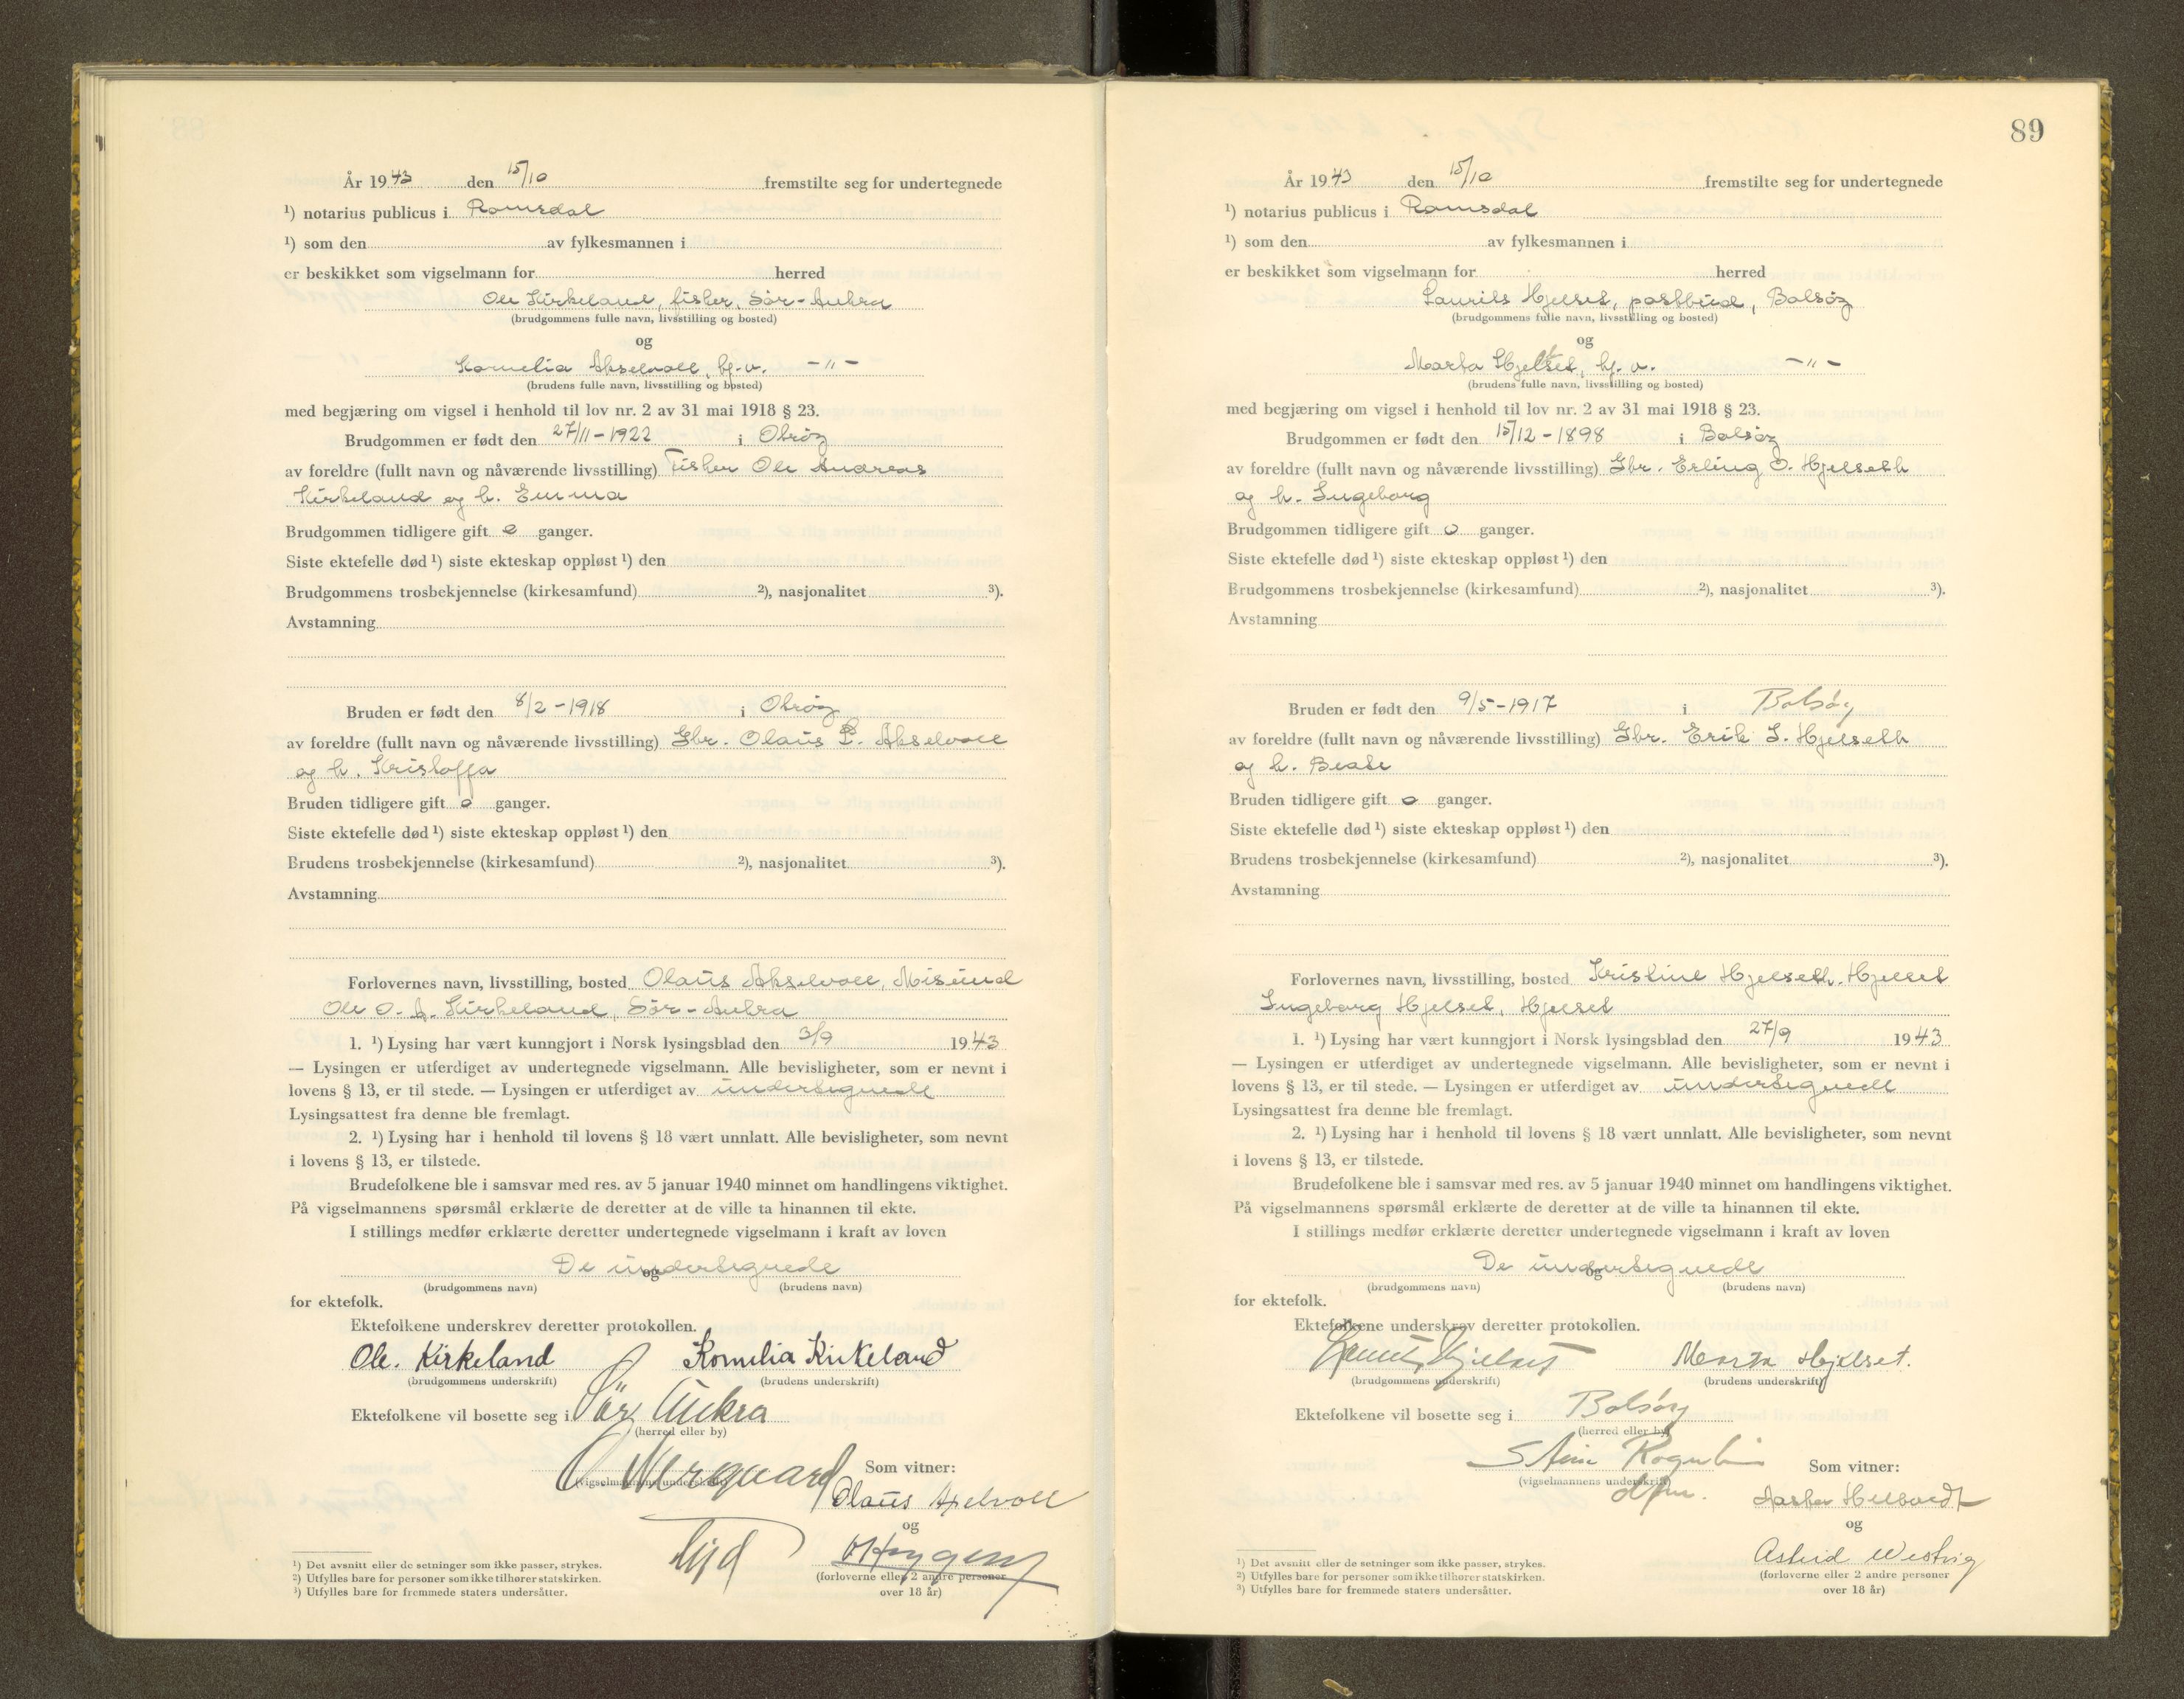 År 1943 den 15/10 fremstilte seg for undertegnede
¹) notarius publicus i Romsdal
¹) som den av fylkesmannen i
er beskikket som vigselmann for herred
Ole Kirkeland, fisker, Sør-Aukra
(brudgommens fulle navn, livsstilling og bosted)
og
Kornelia Akselvoll, hj.v. -"-
(brudens fulle navn, livsstilling og bosted)
med begjæring om vigsel i henhold til lov nr. 2 av 31 mai 1918 § 23.
Brudgommen er født den 27/11-1922 i Otrøy
av foreldre (fullt navn og nåværende livsstilling) Fisker Ole Andreas
Kirkeland og h. Emma
Brudgommen tidligere gift 0 ganger.
Siste ektefelle død ¹) siste ekteskap oppløst ¹) den
Brudgommens trosbekjennelse (kirkesamfund) ²), nasjonalitet ³).
Avstamning
Bruden er født den 8/2-1918 i Otrøy
av foreldre (fullt navn og nåværende livsstilling) Gbr. Olaus P. Akselvoll
og h. Kristoffa
Bruden tidligere gift 0 ganger.
Siste ektefelle død ¹) siste ekteskap oppløst ¹) den
Brudens trosbekjennelse (kirkesamfund) ²), nasjonalitet ³).
Avstamning
Forlovernes navn, livsstilling, bosted Olaus Akselvoll, Misund
Ole O. A. Kirkeland, Sør-Aukra
1. ¹) Lysing har vært kunngjort i Norsk lysingsblad den 3/9 1943
— Lysingen er utferdiget av undertegnede vigselmann. Alle bevisligheter, som er nevnt i
lovens § 13, er til stede. — Lysingen er utferdiget av undertegnede
Lysingsattest fra denne ble fremlagt.
2. ¹) Lysing har i henhold til lovens § 18 vært unnlatt. Alle bevisligheter, som nevnt
i lovens § 13, er tilstede.
Brudefolkene ble i samsvar med res. av 5 januar 1940 minnet om handlingens viktighet.
På vigselmannens spørsmål erklærte de deretter at de ville ta hinannen til ekte.
I stillings medfør erklærte deretter undertegnede vigselmann i kraft av loven
De undertegnede
og
(brudgommens navn) (brudens navn)
for ektefolk.
Ektefolkene underskrev deretter protokollen.
Ole. Kirkeland Kornelia Kirkeland
(brudgommens underskrift) (brudens underskrift)
Ektefolkene vil bosette seg i Sør Aukra
(herred eller by)
Som vitner:
(vigselmannens underskrift)
Olaus Akselvoll
og
(forloverne eller 2 andre personer
over 18 år)
¹) Det avsnitt eller de setninger som ikke passer, strykes.
²) Utfylles bare for personer som ikke tilhører statskirken.
³) Utfylles bare for fremmede staters undersåtter.
89
År 1943 den 15/10 fremstilte seg for undertegnede
¹) notarius publicus i Romsdal
¹) som den av fylkesmannen i
er beskikket som vigselmann for herred
Laurits Hjelset, postbud, Bolsøy
(brudgommens fulle navn, livsstilling og bosted)
og
Marta Hjelset, hj. v. -"-
(brudens fulle navn, livsstilling og bosted)
med begjæring om vigsel i henhold til lov nr. 2 av 31 mai 1918 § 23.
Brudgommen er født den 15/12-1898 i Bolsøy
av foreldre (fullt navn og nåværende livsstilling) Gbr. Erling O. Hjelseth
og h. Ingeborg
Brudgommen tidligere gift 0 ganger.
Siste ektefelle død ¹) siste ekteskap oppløst ¹) den
Brudgommens trosbekjennelse (kirkesamfund) ²), nasjonalitet ³).
Avstamning
Bruden er født den 9/5-1917 i Bolsøy
av foreldre (fullt navn og nåværende livsstilling) Gbr. Erik L. Hjelseth
og h. Beate
Bruden tidligere gift 0 ganger.
Siste ektefelle død ¹) siste ekteskap oppløst ¹) den
Brudens trosbekjennelse (kirkesamfund) ²), nasjonalitet ³).
Avstamning
Forlovernes navn, livsstilling, bosted Kristine Hjelseth. Hjelset
Ingeborg Hjelset, Hjelset
1. ¹) Lysing har vært kunngjort i Norsk lysingsblad den 27/9 1943
— Lysingen er utferdiget av undertegnede vigselmann. Alle bevisligheter, som er nevnt i
lovens § 13, er til stede. — Lysingen er utferdiget av undertegnede
Lysingsattest fra denne ble fremlagt.
2. ¹) Lysing har i henhold til lovens § 18 vært unnlatt. Alle bevisligheter, som nevnt
i lovens § 13, er tilstede.
Brudefolkene ble i samsvar med res. av 5 januar 1940 minnet om handlingens viktighet.
På vigselmannens spørsmål erklærte de deretter at de ville ta hinannen til ekte.
I stillings medfør erklærte deretter undertegnede vigselmann i kraft av loven
De undertegnede
og
(brudgommens navn) (brudens navn)
for ektefolk.
Ektefolkene underskrev deretter protokollen.
Laurits Hjelset Marta Hjelset.
(brudgommens underskrift) (brudens underskrift)
Ektefolkene vil bosette seg i Bolsøy
(herred eller by)
Som vitner:
(vigselmannens underskrift)
og
Astrid Westvig
(forloverne eller 2 andre personer
over 18 år)
¹) Det avsnitt eller de setninger som ikke passer, strykes.
²) Utfylles bare for personer som ikke tilhører statskirken.
³) Utfylles bare for fremmede staters undersåtter.